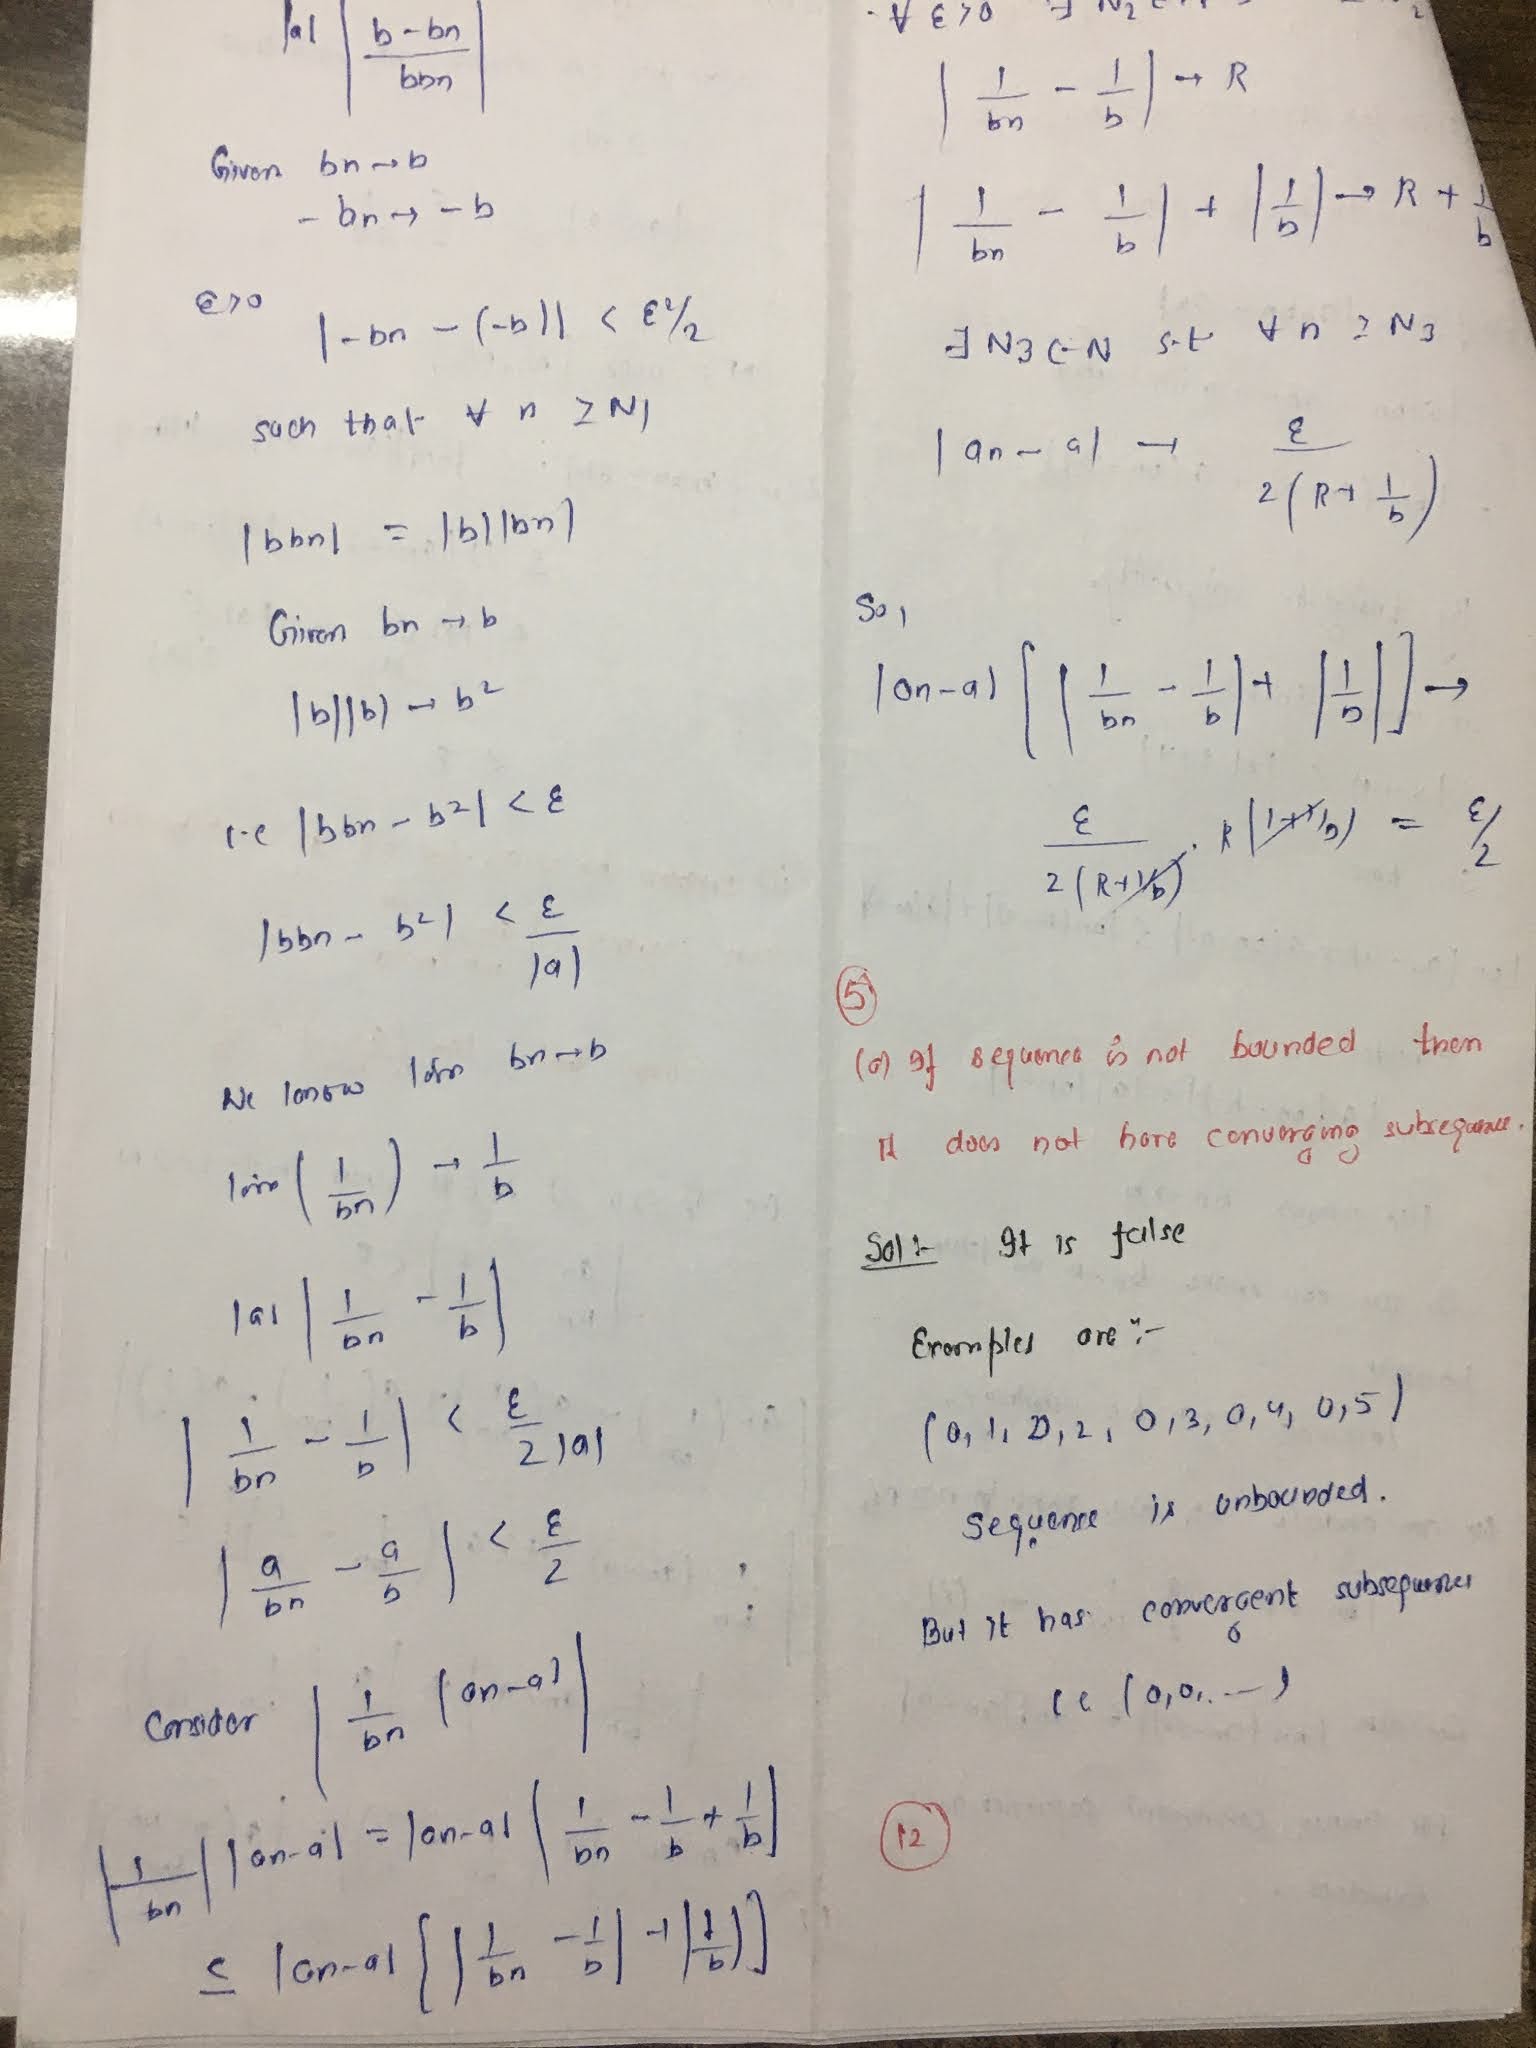 |a| | b - bn / bbn |
Given bn → b
- bn → - b
ε>0 |-bn - (-b)| < ε²/2
such that ∀ n ≥ N1
|bbn| = |b||bn|
Given bn → b
|b||b| → b²
i.e |bbn - b²| < ε
|bbn - b²| < ε / |a|
We know lim bn → b
lim ( 1/bn ) → 1/b
|a| | 1/bn - 1/b |
| 1/bn - 1/b | < ε / 2|a|
| a/bn - a/b | < ε/2
Consider | 1/bn (an-a) |
| 1/bn | |an-a| = |an-a| | 1/bn - 1/b + 1/b |
≤ |an-a| [ | 1/bn - 1/b | + | 1/b | ]
∀ ε>0 ∃ N2
| 1/bn - 1/b | → R
| 1/bn - 1/b | + | 1/b | → R + 1/b
∃ N3 ∈ N s.t ∀ n ≥ N3
|an - a| → ε / 2(R + 1/b)
So,
|an-a| [ | 1/bn - 1/b | + | 1/b | ] →
ε / 2(R+1/b) . R(1+1/b) = ε/2
5
(a) If sequence is not bounded then
it does not have converging subsequence.
Sol:- It is false
Examples are :-
(0, 1, 0, 2, 0, 3, 0, 4, 0, 5)
Sequence is unbounded.
But it has convergent subsequence
ie (0, 0, ... )
12